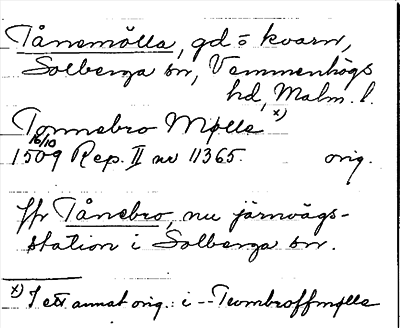 Tånemölla, gd o kvarn,
Solberga sn, Vemmenhögs
hd, Malm. l.
Tonnebro Mølle x)
16/10
1509 Rep. II nr 11365. orig.
ffr Tånebro, nu järnvägs-
station i Solberga sn.
x) I ett annat orig.: i -- Tumbroffmølle